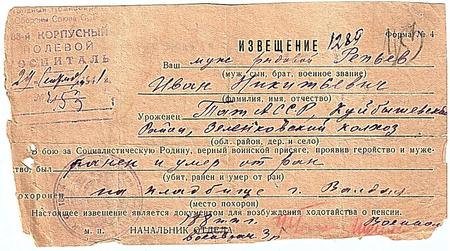 Народный Комиссариат
Обороны Союза ССР
КОРПУСНЫЙ
ПОЛЕВОЙ
ГОСПИТАЛЬ
Форма № 4
ИЗВЕЩЕНИЕ 1289
Ваш муж рядовой Репьев
(муж, сын, брат, военное звание)
Иван Никитьевич
(фамилия, имя, отчество)
Уроженец ТатССР, Куйбышевский
район, колхоз
(обл. район, дер. и село)
В бою за Социалистическую Родину, верный воинской присяге, проявив геройство и муже-
ство, был ранен и умер от ран
(убит, ранен и умер от ран)
похоронен на кладбище г. Валдая
(место похорон)
Настоящее извещение является документом для возбуждения ходотайства о пенсии.
м. п. НАЧАЛЬНИК ОТДЕЛА